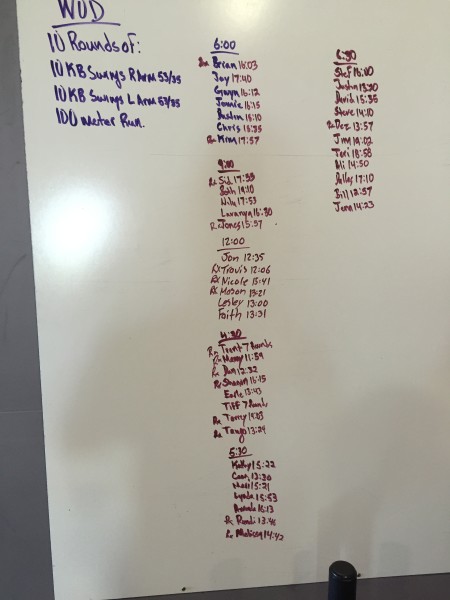 WOD
10 Rounds of:
10 KB Swings R Arm 53/35
10 KB Swings L Arm 53/35
100 meter Run.
6:00
Rx Brian 16:03
Joy 17:40
Gwyn 16:12
Jonnie 16:15
Dustin 16:10
Chris 15:35
Rx Kim 17:57
9:00
Rx Sid 17:55
Beth 19:10
17:53
Lavanya 16:30
Rx Jones 15:37
12:00
Jon 12:35
Rx Travis 12:06
Rx Nicole 15:41
Rx Mason 13:21
Lesley 13:00
Faith 13:31
4:30
Rx Trent 7 Rounds
Rx 11:59
Rx Dan 12:32
Rx Sharon 15:15
Earle 13:43
Tiff 7 Rounds
Rx Terry
Rx 13:24
5:30
Kathy 15:22
13:30
15:21
Lynda 15:53
16:13
Rx Randi 13:45
Rx Melissa 14:42
6:30
Stef 16:00
Justin 13:30
David 15:35
Steve 14:10
Rx Dez 13:57
Jim 14:02
Teri 18:58
Ali 14:50
17:10
Bill 12:57
Jenn 14:23